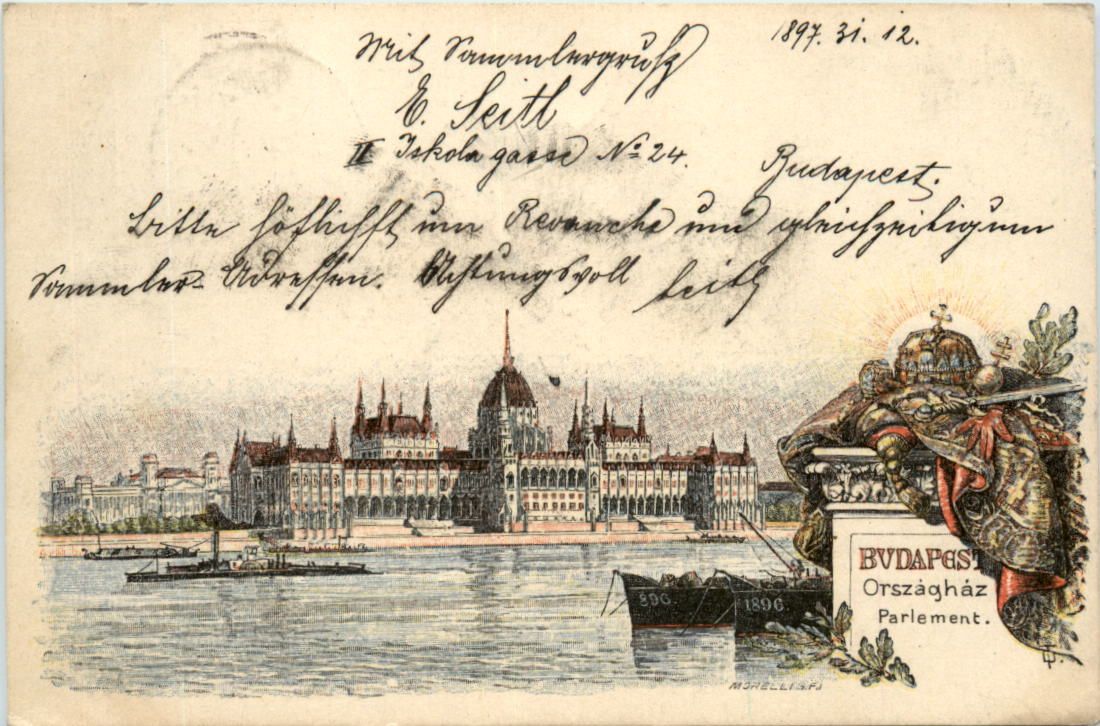 1897. 31. 12.
Mit Sammlergruß
E. Seitl
II Iskola gasse No 24.
Budapest.
Bitte höflichst um Revanche und gleichzeitig um
Sammler-Adressen. Achtungsvoll Seitl
896
1896
BUDAPEST
Országház
Parlement.
MORELLI G. FJ